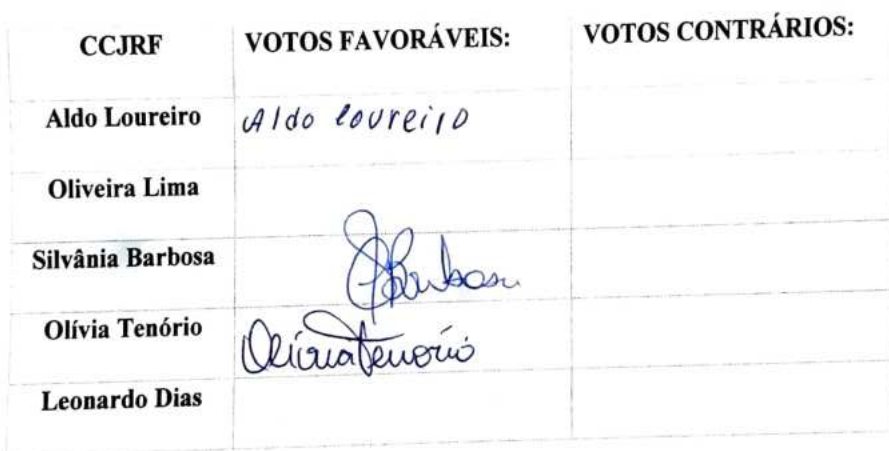 CCJRF VOTOS FAVORÁVEIS: VOTOS CONTRÁRIOS:
Aldo Loureiro Aldo Loureiro
Oliveira Lima
Silvânia Barbosa Barbosa
Olívia Tenório Olívia Tenório
Leonardo Dias